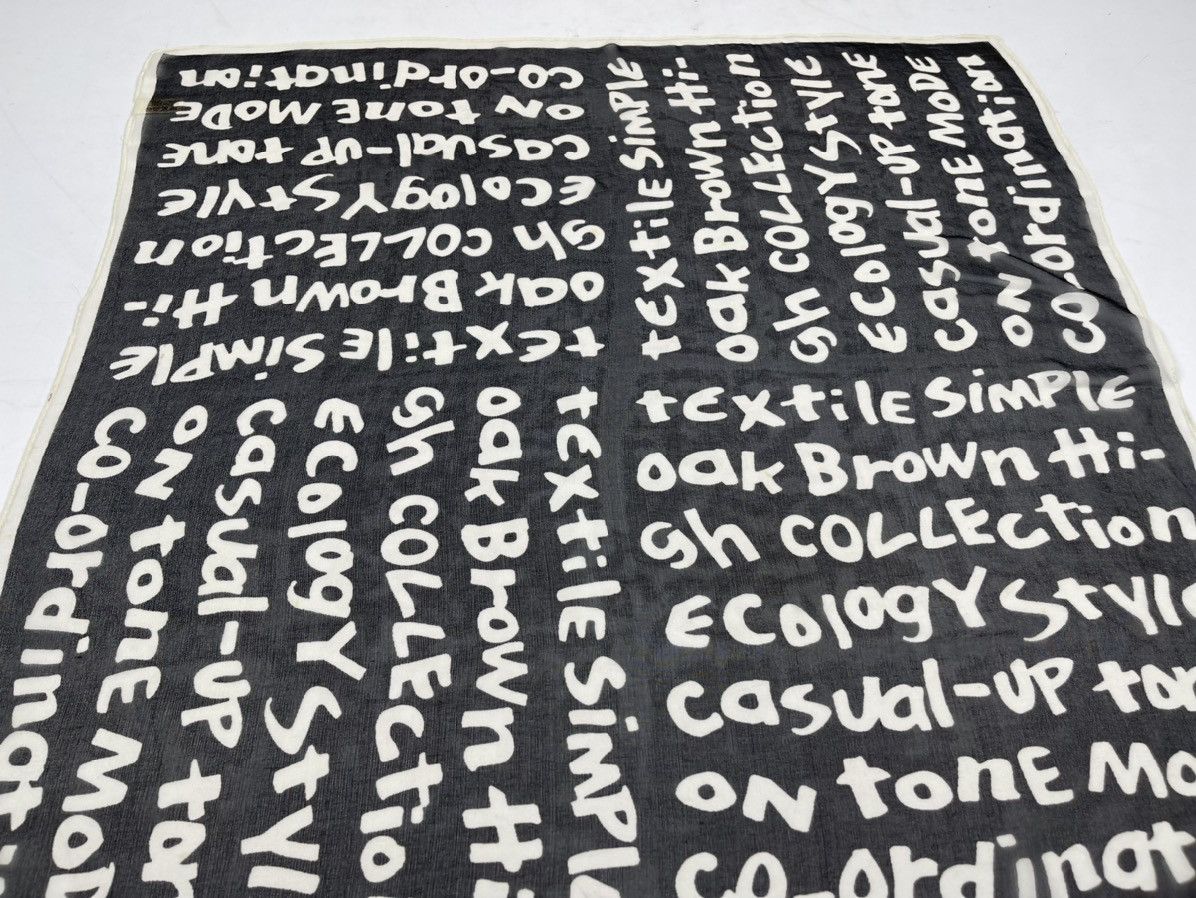 tExtilE SiMPLE
oak Brown Hi-
gh COLLEction
ECologY StYlE
casual-up tonE
ON tonE MODE
CO-ordination
tExtilE SiMPLE
oak Brown Hi-
gh COLLEction
ECologY StYlE
casual-up tonE
ON tonE MODE
CO-ordination
tExtilE SiMPLE
oak Brown Hi-
gh COLLEction
ECologY StYlE
casual-up ton
ON tonE Mo
CO-ordinat
tExtilE SiMPLE
oak Brown Hi
gh COLLEctio
ECologY StYl
casual-up ton
ON tonE MOD
CO-ordinat